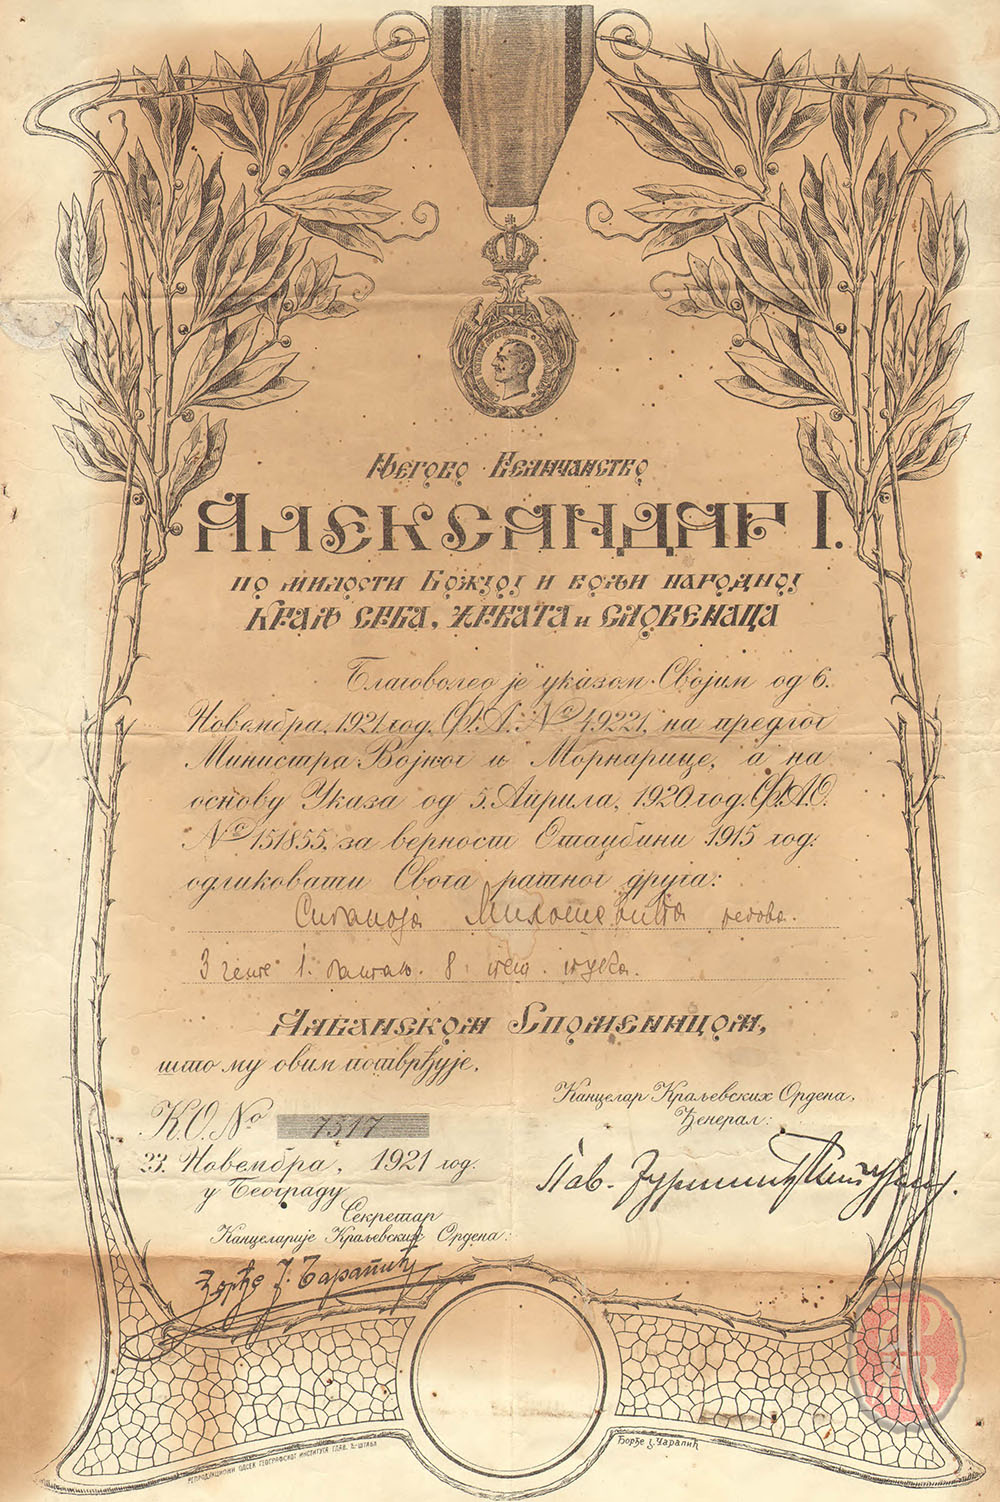 Његово Величанство
АЛЕКСАНДАР I.
по милости Божјој и вољи народној
Краљ Срба, Хрвата и Словенаца
Благоволео је указом Својим од 6.
Новембра, 1921 год. Ф.А. № 49221, на предлог
Министра Војног и Морнарице, а на
основу Указа од 5. Априла, 1920 год. Ф.А.О.
№ 151855, за верност Отаџбини 1915 год.
одликовати Свога ратног друга:
Милошевића редова.
3 чете 1. батаљ. 8. пеш. пука.
Албанском Споменицом,
што му овим потврђује.
Канцелар Краљевских Ордена,
Ђенерал:
К.О. № 7517
23. Новембра, 1921 год.
у Београду
Секретар
Канцеларије Краљевских Ордена:
Ђорђе З. Чарапић
Ђорђе З. Чарапић
РЕПРОДУКЦИОНИ ОДСЕК ГЕОГРАФСКОГ ИНСТИТУТА ГЛАВ. Ђ-ШТАБА